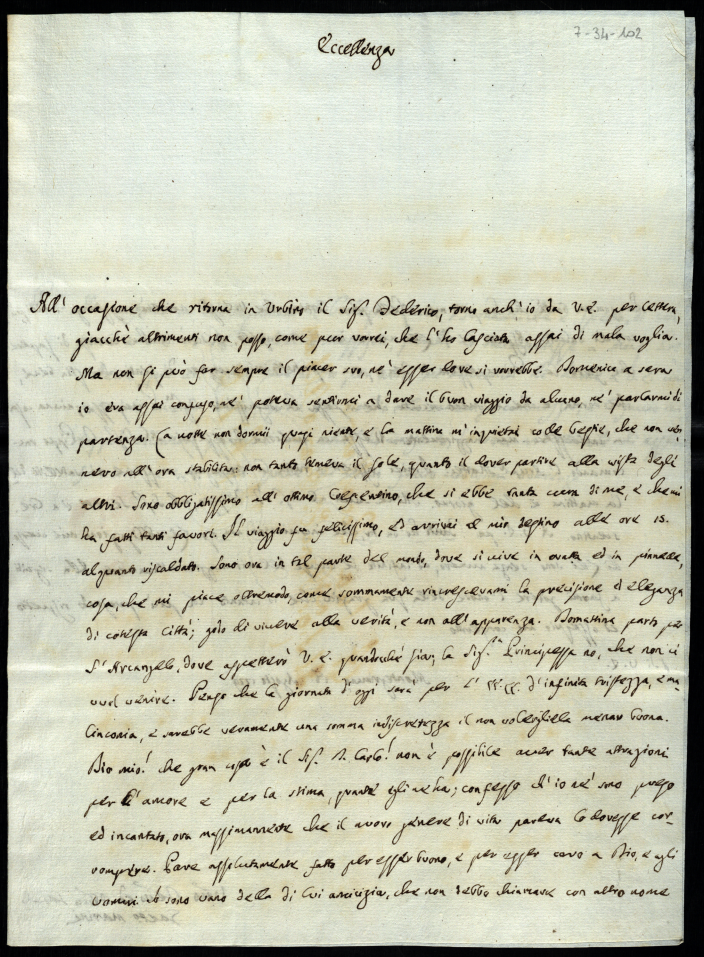 7-34-102
Eccellenza
All' occasione che ritorna in Urbino il Sig.r Federico, torno anch'io da V.E. per lettera,
giacchè altrimenti non posso, come pur vorrei, che l'ho lasciata assai di mala voglia.
Ma non si può far sempre il piacer suo, nè esser dove si vorrebbe. Domenica a sera
io era assai confuso, nè poteva sentirmi a dare il buon viaggio da alcuno, nè parlarmi di
partenza. La notte non dormii quasi niente, e la mattina m'inquietai colle bestie, che non ve-
nero all'ora stabilita: non tanto temeva il sole, quanto il dover partire alla vista degli
altri. Sono obbligatissimo all' ottimo che si ebbe tanta cura di me, e che mi
ha fatti tanti favori. Il viaggio fu felicissimo, ed arrivai al mio destino alle ore 15.
alquanto riscaldato. Sono ora in tal parte del mondo, dove si vive in ed in pianella,
cosa, che mi piace oltremodo, come sommamente rincrescevami la precisione ed eleganza
di cotesta Città; godo di vivere alla verità, e non all'apparenza. Domattina parto per
S. Arcangelo, dove aspetterò V.E. quandochè sia; la Sig.ra Principessa no, che non ci
vuol venire. Penso che la giornata d'oggi sarà per l' EE.EE. d'infinita tristezza, e ma-
linconia, e sarebbe veramente una somma indiscretezza il non volergliela menar buona.
Dio mio! che gran cosa è il Sig.r D. Carlo! non è possibile aver tante attrazioni
per l'amore e per la stima, quante egli ne ha; confesso ch'io nè sono preso
ed incantato, ora massimamente che il nuovo genere di vita pareva lo dovesse cor-
rompere. Pare assolutamente fatto per esser buono, e per esser caro a Dio, e agli
uomini. Io sono vano della di lui amicizia, che non debbo chiamare con altro nome